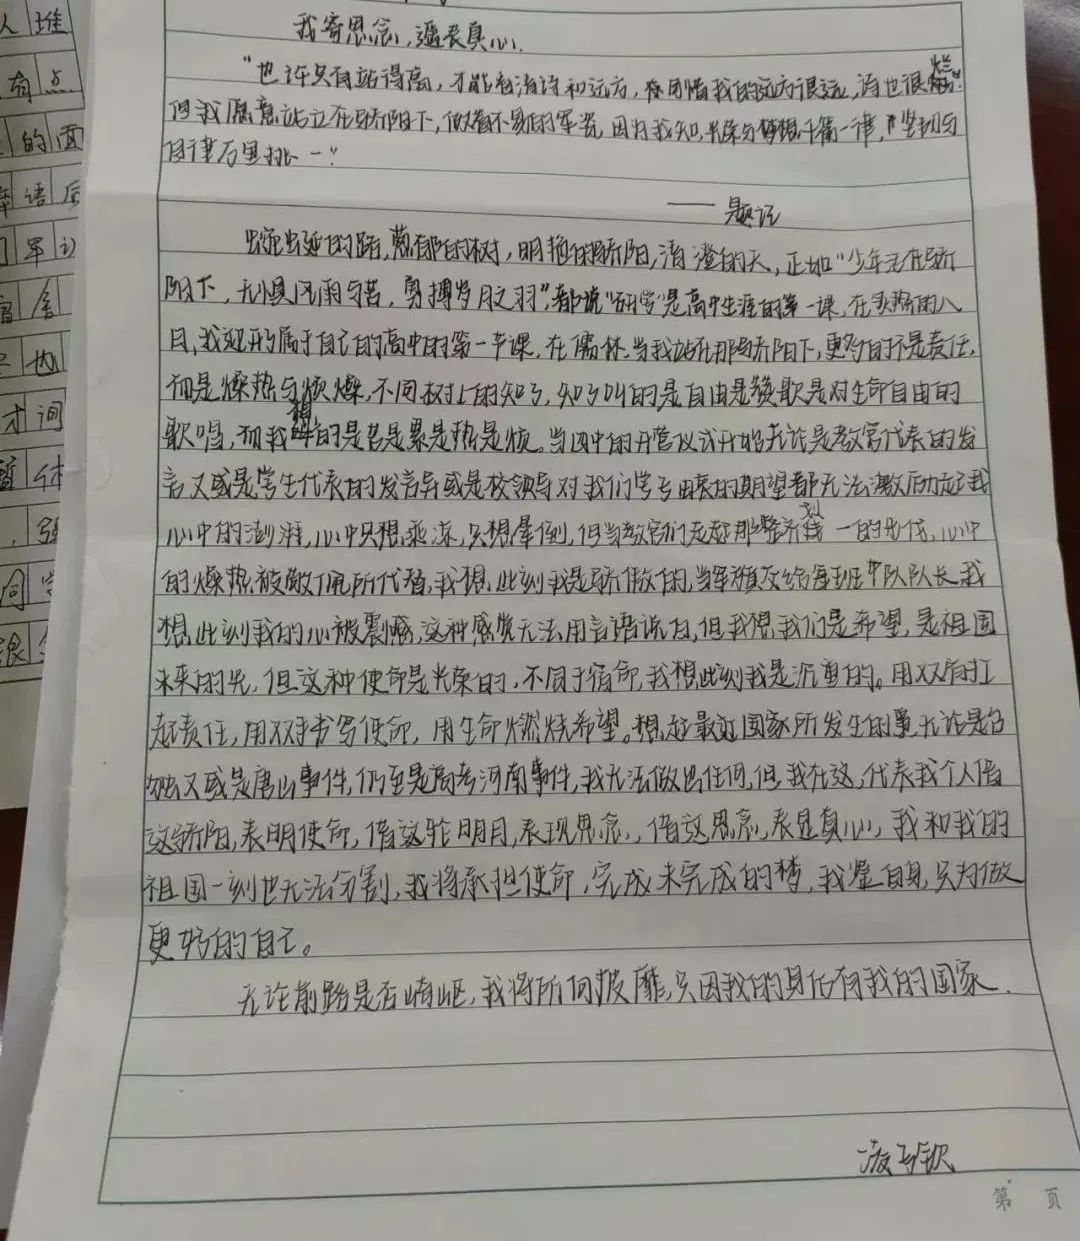 我寄思念，遥表真心.
"也许只有站得高，才能看清诗和远方，我的远方很远，诗也很烂."
但我愿意站立在骄阳下，做着不易的军姿，因为我知，千篇一律，"坚韧与
自律万里挑一."
——题记
蜿蜒的路，葱郁的树，明艳的骄阳，清澄的天，正如"少年活在骄
阳下，无惧风雨与苦，勇搏岁月之羽"，都说"研学"是高中生涯的第一课，在炎热的八
月，我迎来属于自己的高中的第一节课，在儒林，当我站在那骄阳下，更多的不是责任，
而是燥热与烦燥，不同树上的知了，知了叫的是自由是赞歌是对生命自由的
歌唱，而我想的是苦是累是热是烦。当四中的开营仪式开始无论是教官代表的发
言又或是学生代表的发言异或是校领导对我们学子由衷的期望都无法激励起我
心中的澎湃，心中只想乘凉，只想晕倒，但当教官们走起那整齐划一的步伐，心中
的燥热被敬佩所代替，我想，此刻我是骄傲的，当军旗交给每班中队队长，我
想，此刻我的心被震撼，这种感觉无法用言语说明，但我想，我们是希望，是祖国
未来的光，但这种使命是光荣的，不同于宿命，我想此刻我是沉重的。用双肩扛
起责任，用双手书写使命，用生命燃烧希望。想起最近国家所发生的事无论是台
独又或是唐山事件，仍至是高考河南事件，我无法做出任何，但我在这，代表我个人借
这骄阳，表明使命，借这轮明月，表现思念，借这思念，表显真心，我和我的
祖国一刻也无法分割，我将承担使命，完成未完成的梦，我鉴自身，只为做
更好的自己。
无论前路是否崎岖，我将所向披靡，只因我的身后有我的国家.
第 页